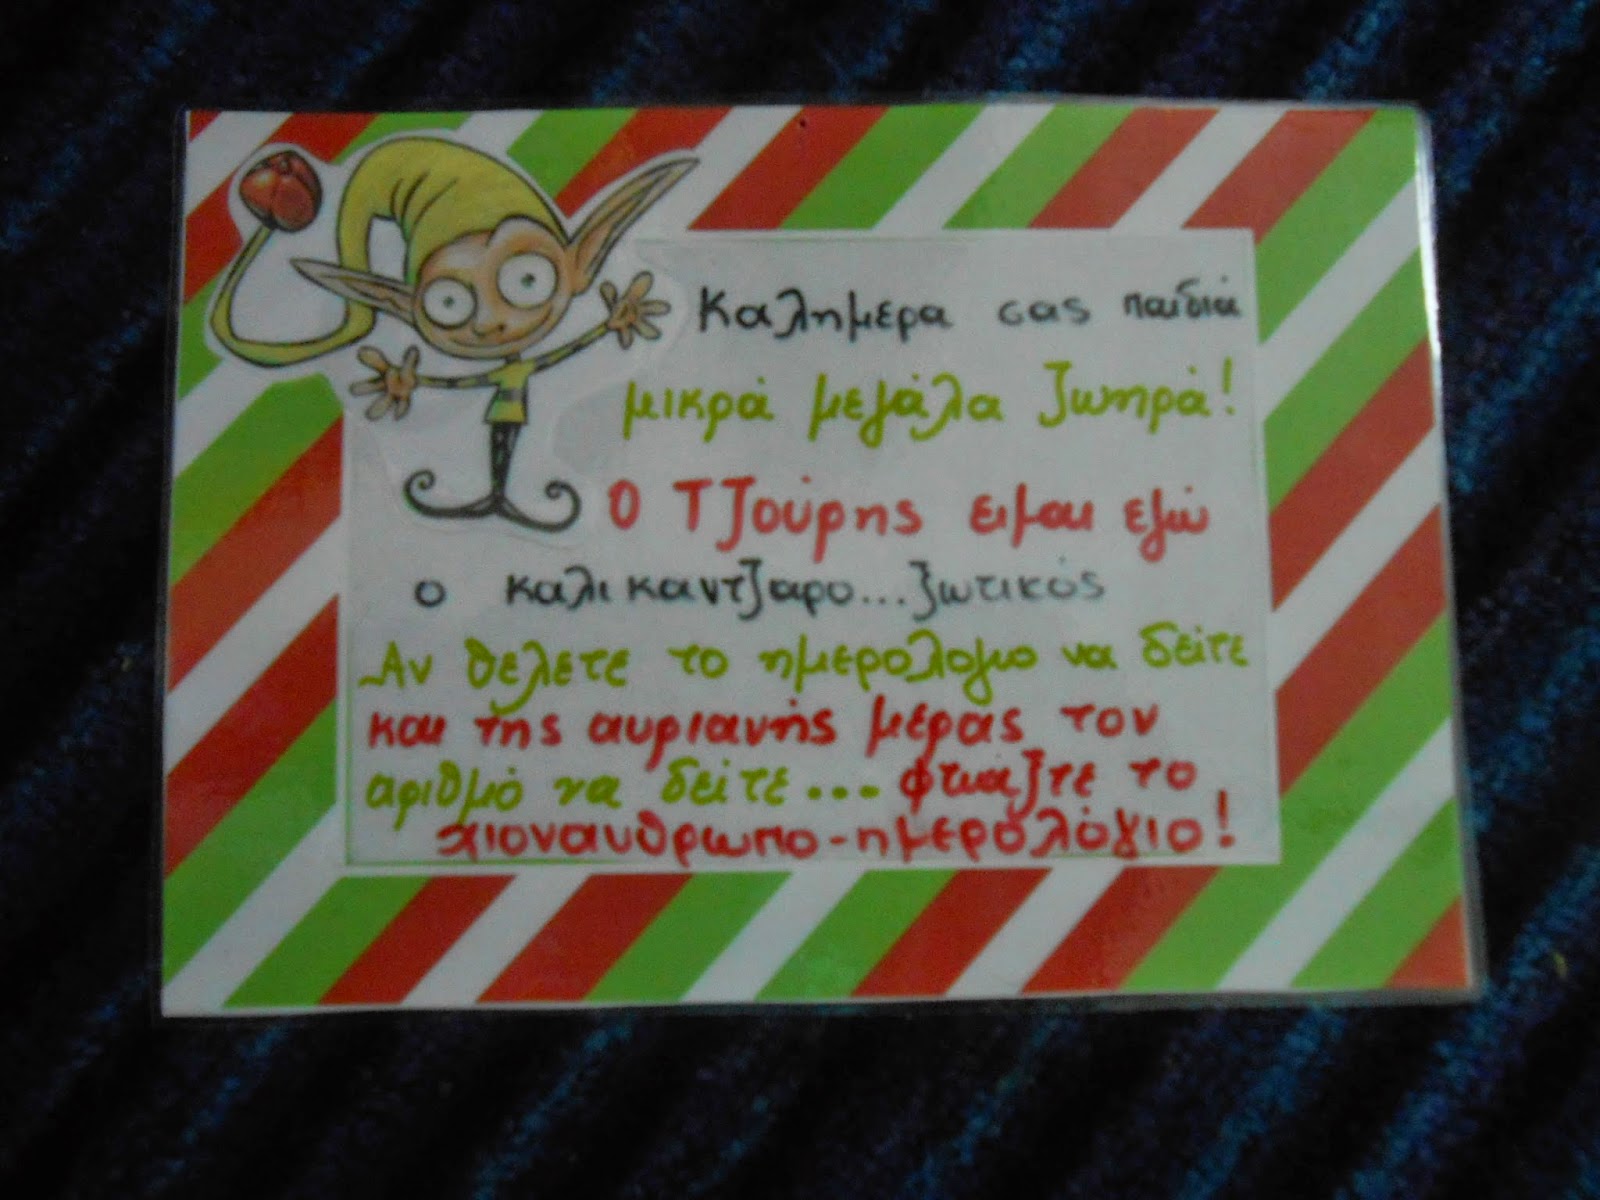 Καλημερα σας παιδιά
μικρά μεγάλα ζωηρά!
Ο Τζούρης ειμαι εγώ
ο καλικαντζαρο...ζωτικός
Αν θελετε το ημερολογιο να δείτε
και της αυριανής μέρας τον
αριθμό να δείτε... φτιάζτε το
χιονανυθρωπο-ημερολόγιο!